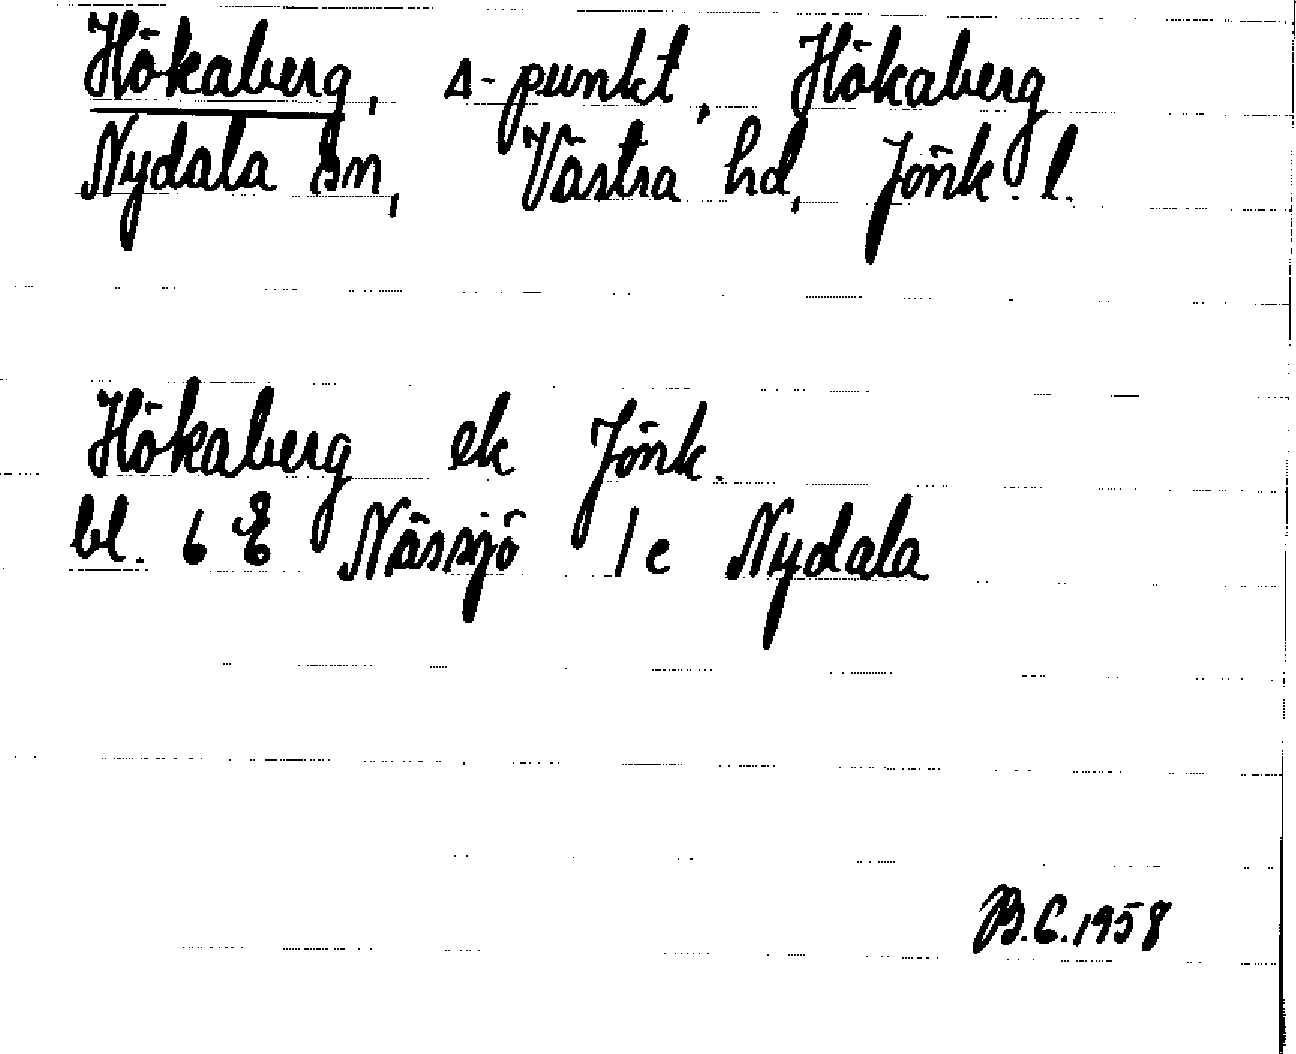 Hökaberg, Δ-punkt, Hökaberg
Nydala sn, Västra hd, Jönk. l.
Hökaberg ek Jönk.
bl. 6 E Nässjö 1 c Nydala
B.E.1958